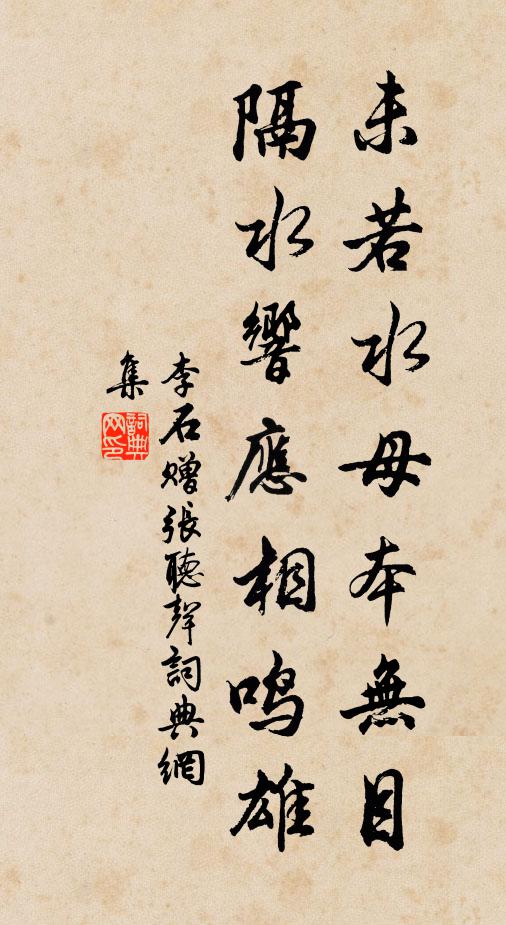 未若水母本無目
隔水響應相鸣雄
李石贈張聽聲詞典網
集
詞典網印